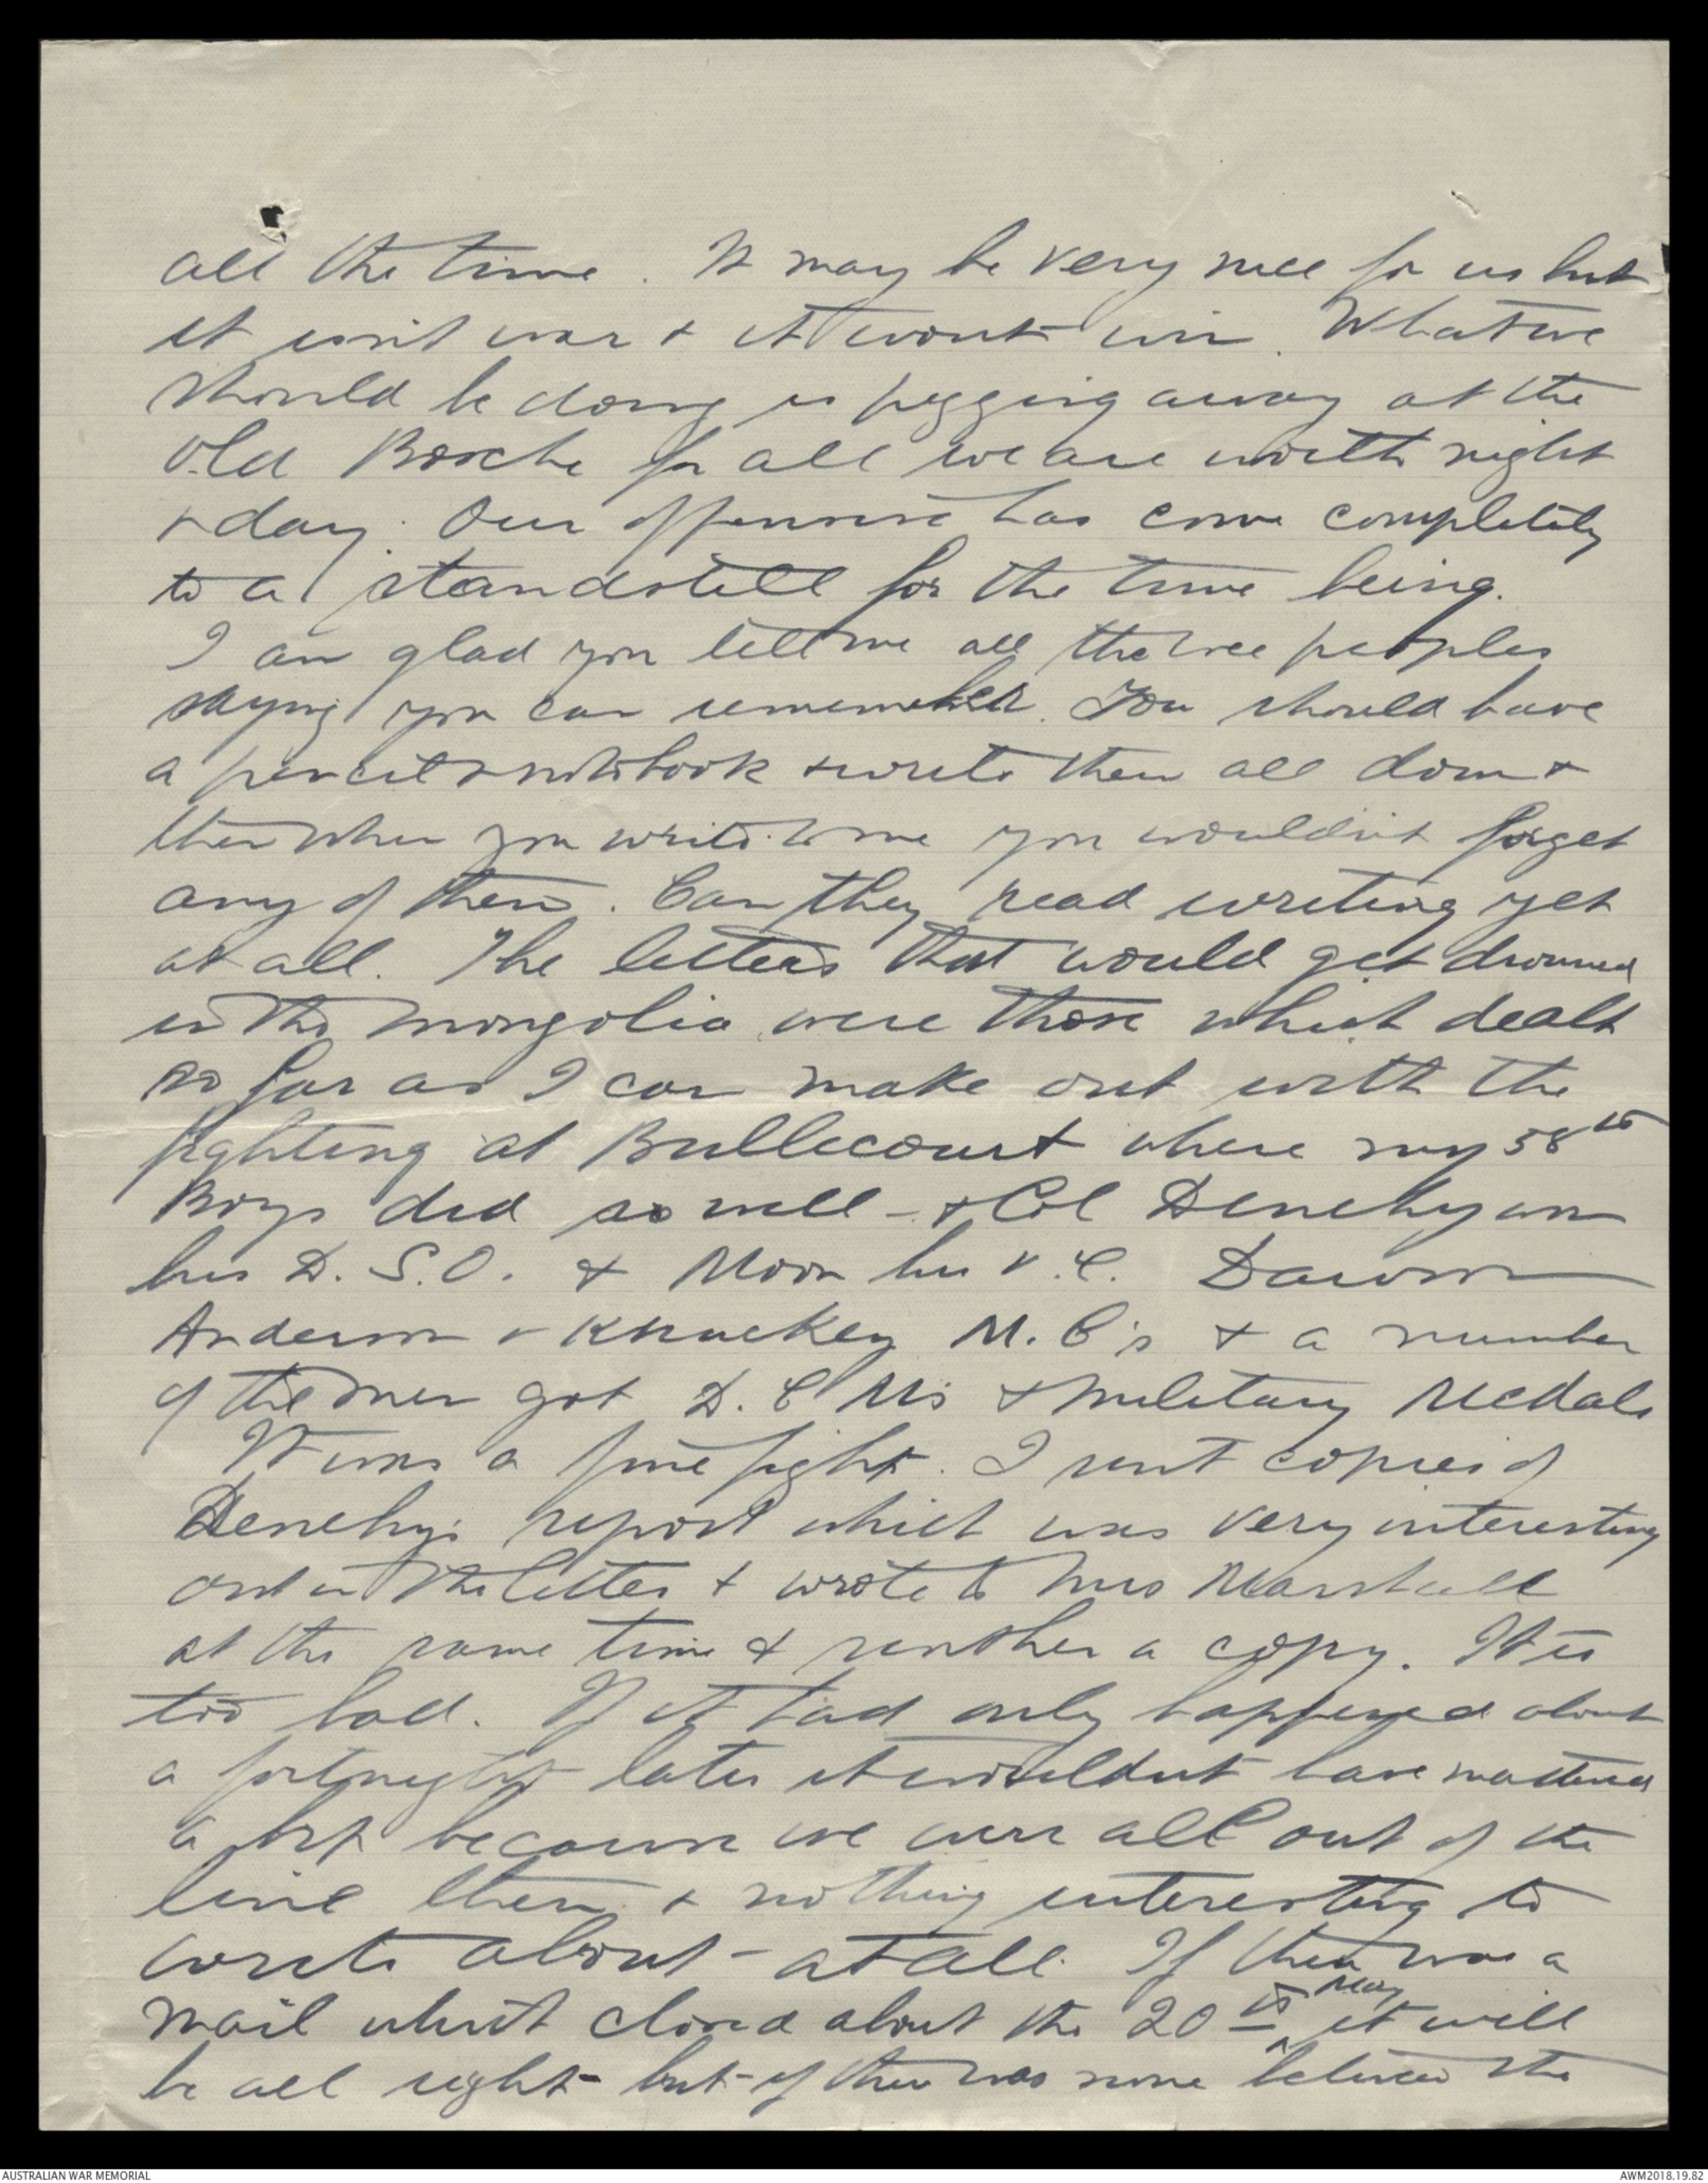 all the time. It may be very nice for us but
it isn't war & it wont win. What we
should be doing is pegging away at the
old Bosche for all we are worth night
& day. Our offensive has come completely
to a standstill for the time being.
I am glad you tell me all the wee peoples
sayings you can remember. You should have
a pencil & notebook & write them all down &
then when you write to me you wouldn't forget
any of them. Can they read writing yet
at all. The letters that would get drowned
in the Mongolia were those which dealt
so far as I can make out with the
fighting at Bullecourt where my 58th
Boys did so well - & Col Denehy won
his D.S.O. & Moon his V.C. Dawson
Anderson & Knuckey M.C's & a number
of the men got D.C.Ms & Military Medals
It was a fine fight. I sent copies of
Denehy's report which was very interesting
in the letter & wrote to Mrs Marshall
at the same time & sent her a copy. It is
too bad. If it had only happened about
a fortnight later it wouldnt have mattered
a bit because we were all out of the
line then & nothing interesting to
write about - at all. If there was a
mail which closed about the 20th May it will
be all right - but if there was none between the
AUSTRALIAN WAR MEMORIAL
AWM2018.19.82